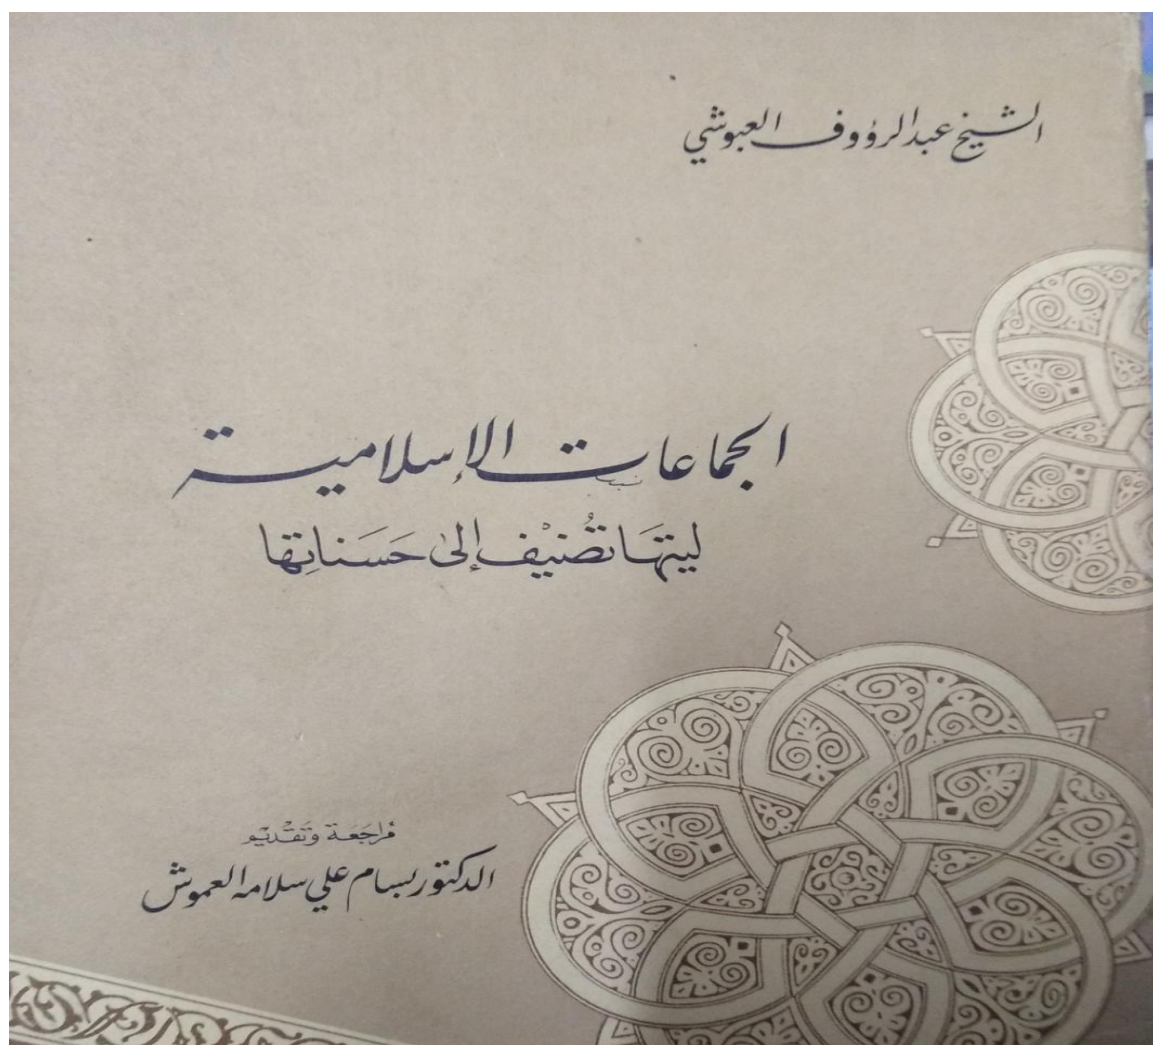 الشيخ عبد الرؤوف العبوشي
الجماعات الإسلامية
ليتها تُضيف إلى حَسَناتِها
مُراجَعَة وَتَقْديم
الدكتور بسام علي سلامه العموش